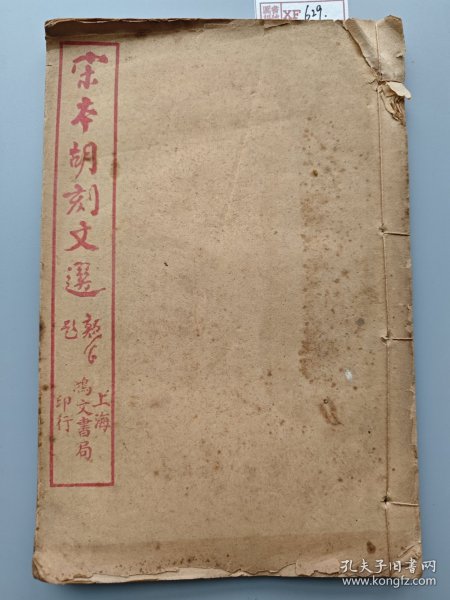 宋本胡刻文選
題
上海
鴻文書局
印行
XF 629.
孔夫子旧书网
www.kongfz.com